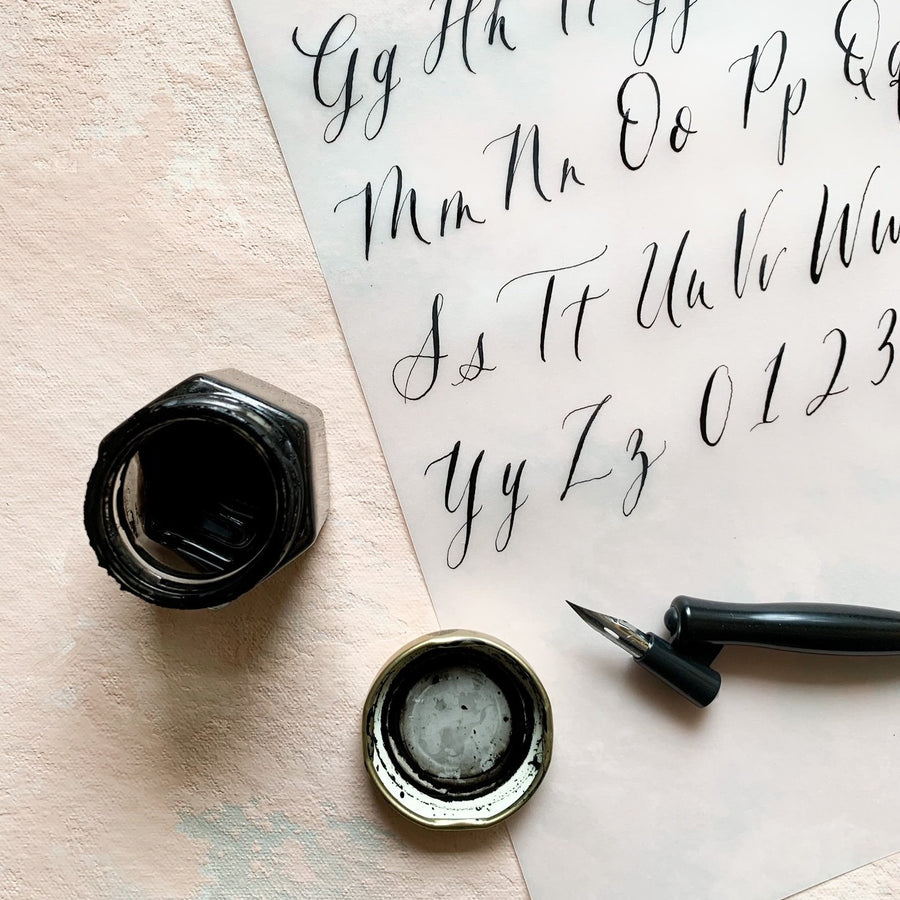 Gg Hh Ii Jj
Mm Nn Oo Pp Qq
Ss Tt Uu Vv Ww
Yy Zz 0 1 2 3